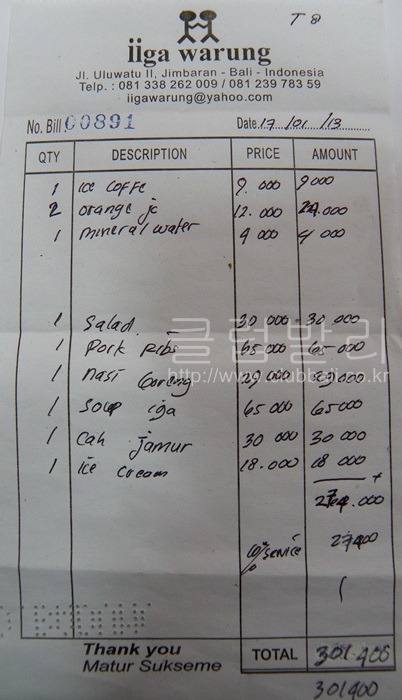 T 8
iiga warung
Jl. Uluwatu II, Jimbaran - Bali - Indonesia
Telp. : 081 338 262 009 / 081 239 783 59
iigawarung@yahoo.com
No. Bill 00891 Date. 17 / 01 / 13
QTY DESCRIPTION PRICE AMOUNT
1 ice coffe 9.000 9000
2 orange jc 12.000 24.000
1 mineral water 4 000 4 000
1 Salad 30 000 30 000
1 Pork Ribs 65 000 65 000
1 nasi Goreng 29 000 29000
1 Soup iga 65 000 65000
1 Cah jamur 30 000 30 000
1 ice cream 18.000 18 000
274.000
10% service 27400
Thank you TOTAL 301.400
Matur Sukseme
301400
클럽발리
http://www.clubbali.co.kr